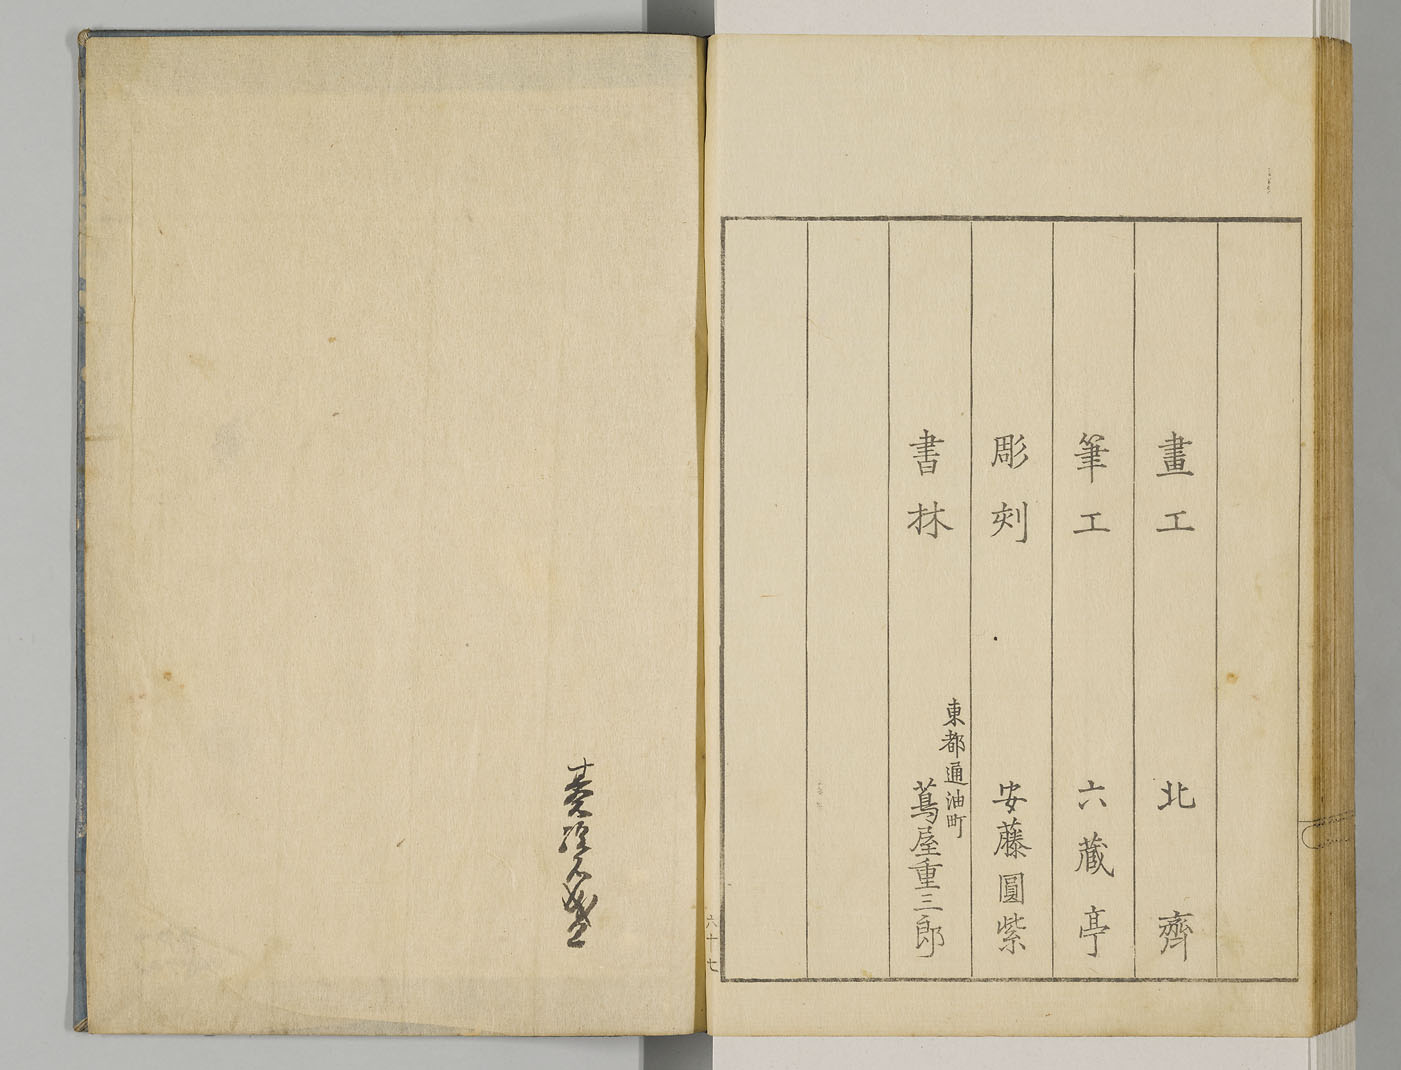 畫工 北齊
筆工 六藏亭
彫刻 安藤圓紫
書林 東都通油町
蔦屋重三郎
六十七